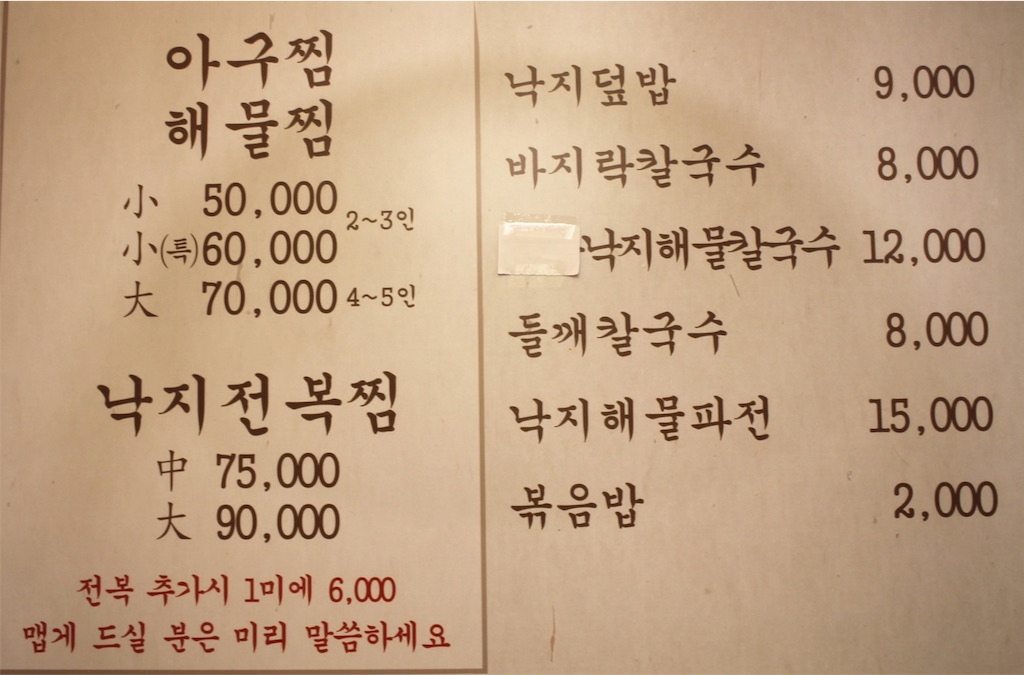 아구찜
해물찜
小 50,000
2~3인
小(특) 60,000
大 70,000 4~5인
낙지전복찜
中 75,000
大 90,000
전복 추가시 1미에 6,000
맵게 드실 분은 미리 말씀하세요
낙지덮밥 9,000
바지락칼국수 8,000
낙지해물칼국수 12,000
들깨칼국수 8,000
낙지해물파전 15,000
볶음밥 2,000